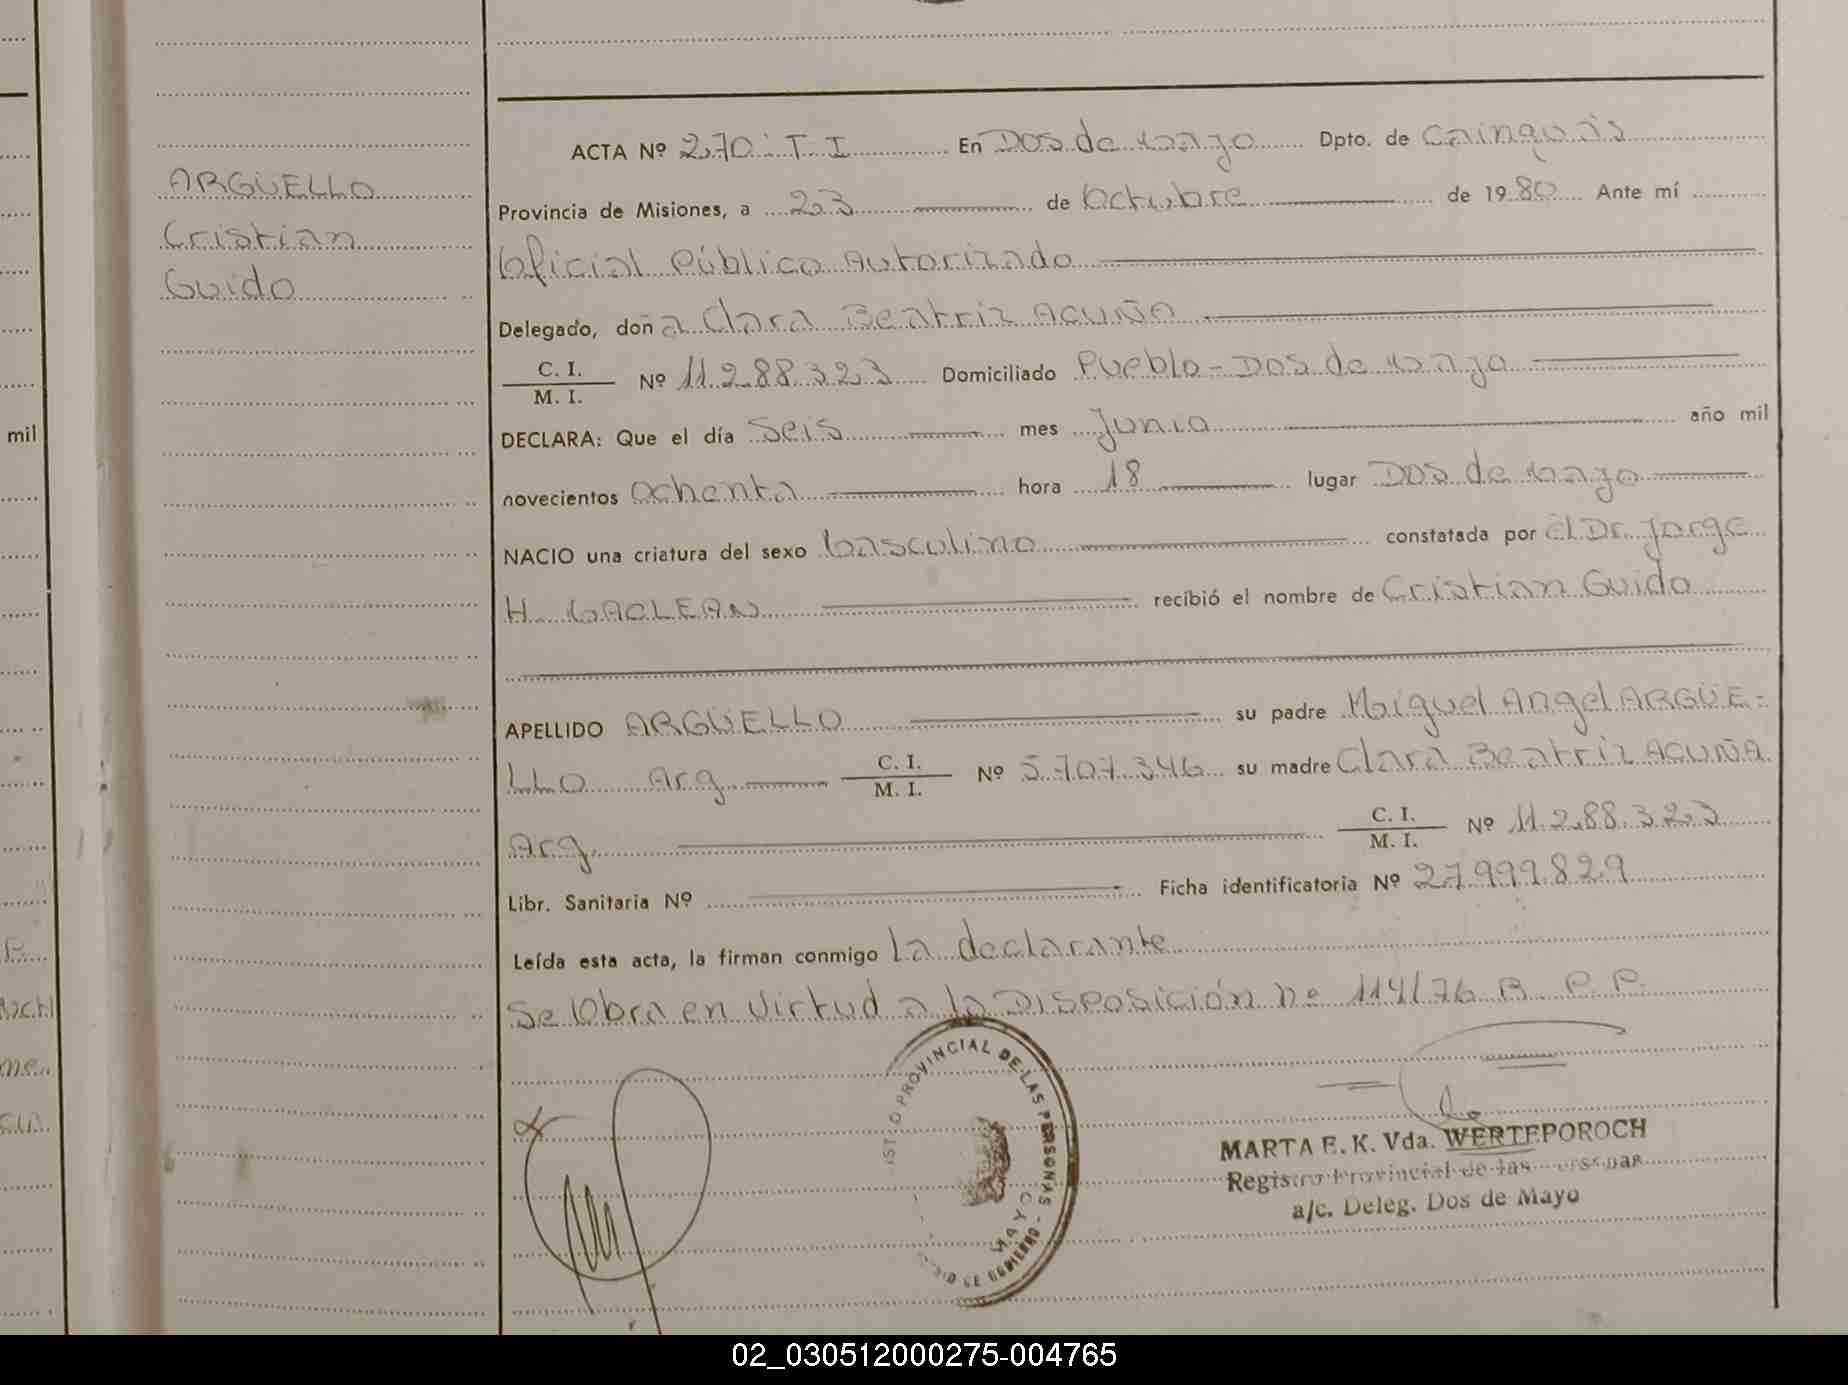 ARGÜELLO
Cristian
Guido
mil
ACTA Nº 270 - T. I. En Dos de Mayo Dpto. de Cainguás
Provincia de Misiones, a 23 de Octubre de 1980 Ante mí
Oficial Público Autorizado
Delegado, doña Clara Beatriz ACUÑA
C. I. / M. I. Nº 11.288.323 Domiciliado Pueblo - Dos de Mayo
DECLARA: Que el día Seis mes Junio año mil
novecientos ochenta hora 18 lugar Dos de Mayo
NACIO una criatura del sexo Masculino constatada por el Dr. Jorge
H. MACLEAN recibió el nombre de Cristian Guido
APELLIDO ARGÜELLO su padre Miguel Angel ARGÜE-
LLO Arg. C. I. / M. I. Nº 5.707.346 su madre Clara Beatriz ACUÑA
Arg. C. I. / M. I. Nº 11.288.323
Libr. Sanitaria Nº Ficha identificatoria Nº 27.999.829
Leída esta acta, la firman conmigo la declarante
Se Obra en Virtud a la Disposición nº 114/76 R. P. P.
PROVINCIAL DE LAS PERSONAS
MAYO
MARTA E. K. Vda. WERTEPOROCH
Registro Provincial de las Personas
a/c. Deleg. Dos de Mayo
02_030512000275-004765